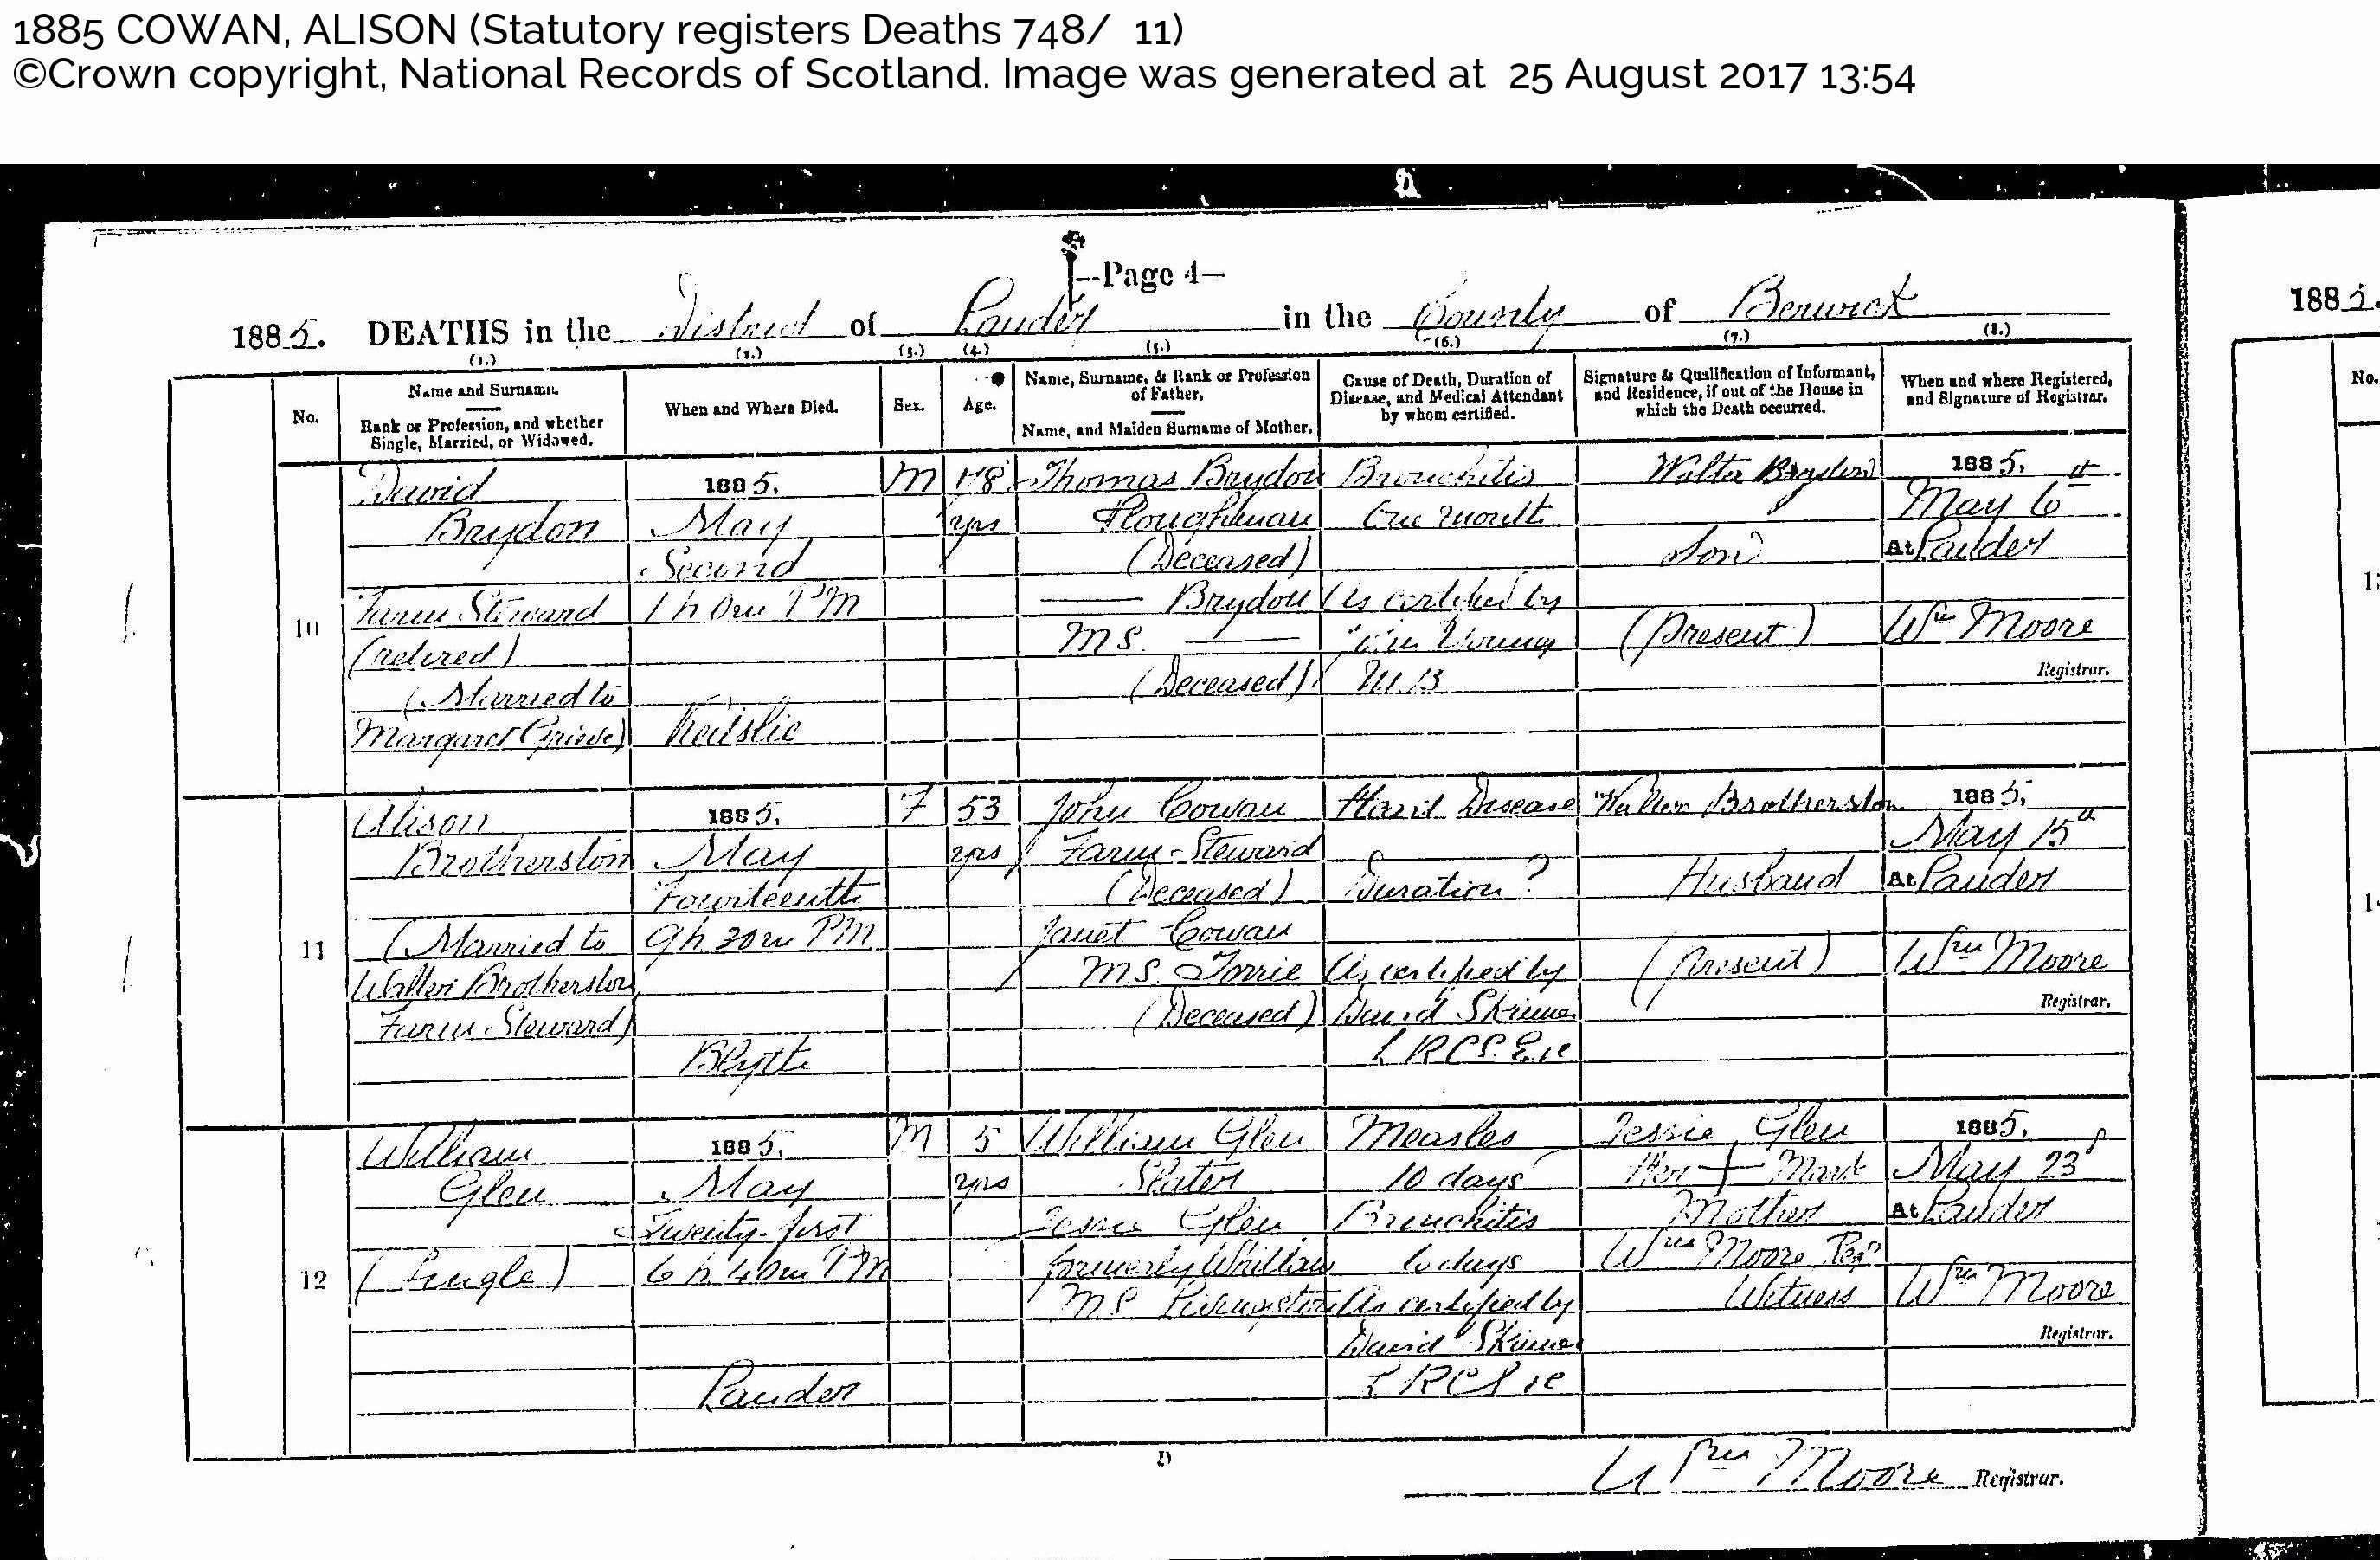 1885 COWAN, ALISON (Statutory registers Deaths 748/ 11)
©Crown copyright, National Records of Scotland. Image was generated at 25 August 2017 13:54
—Page 4—
1885. DEATHS in the District of Lauder in the County of Berwick
(1.) (2.) (3.) (4.) (5.) (6.) (7.) (8.)
No.
Name and Surname.
Rank or Profession, and whether
Single, Married, or Widowed.
When and Where Died.
Sex.
Age.
Name, Surname, & Rank or Profession
of Father.
Name, and Maiden Surname of Mother.
Cause of Death, Duration of
Disease, and Medical Attendant
by whom certified.
Signature & Qualification of Informant,
and Residence, if out of the House in
which the Death occurred.
When and where Registered,
and Signature of Registrar.
10
David
Brydon
Farm Steward
(retired)
(Married to
Margaret Grieve)
1885.
May
Second
1 h 0m PM
M
78
yrs
Thomas Brydon
Ploughman
(Deceased)
—— Brydon
MS ——
(Deceased)
Bronchitis
One month
As certified by
Young
M.B
Walter Brydon
Son
(present)
1885.
May 6th
At Lauder
Wm Moore
Registrar.
11
Alison
Brotherston
(Married to
Walter Brotherston
Farm-Steward)
1885.
May
Fourteenth
9h 30m PM
Blyth
F
53
yrs
John Cowan
Farm-Steward
(Deceased)
Janet Cowan
MS. Torrie
(Deceased)
Heart Disease
Duration?
As certified by
David Skinner
L R C S E
Walter Brotherston
Husband
(present)
1885.
May 15th
At Lauder
Wm Moore
Registrar.
12
William
Glen
(Single)
1885.
May
Twenty-first
6 h 40m PM
Lauder
M
5
yrs
William Glen
Slater
Jessie Glen
formerly
M.S. Livingston
Measles
10 days
Bronchitis
days
As certified by
David Skinner
L R C S
Jessie Glen
Her + Mark
Mother
Wm Moore Regr
Witness
1885.
May 23d
At Lauder
Wm Moore
Registrar.
Wm Moore Registrar.
1885.
No.